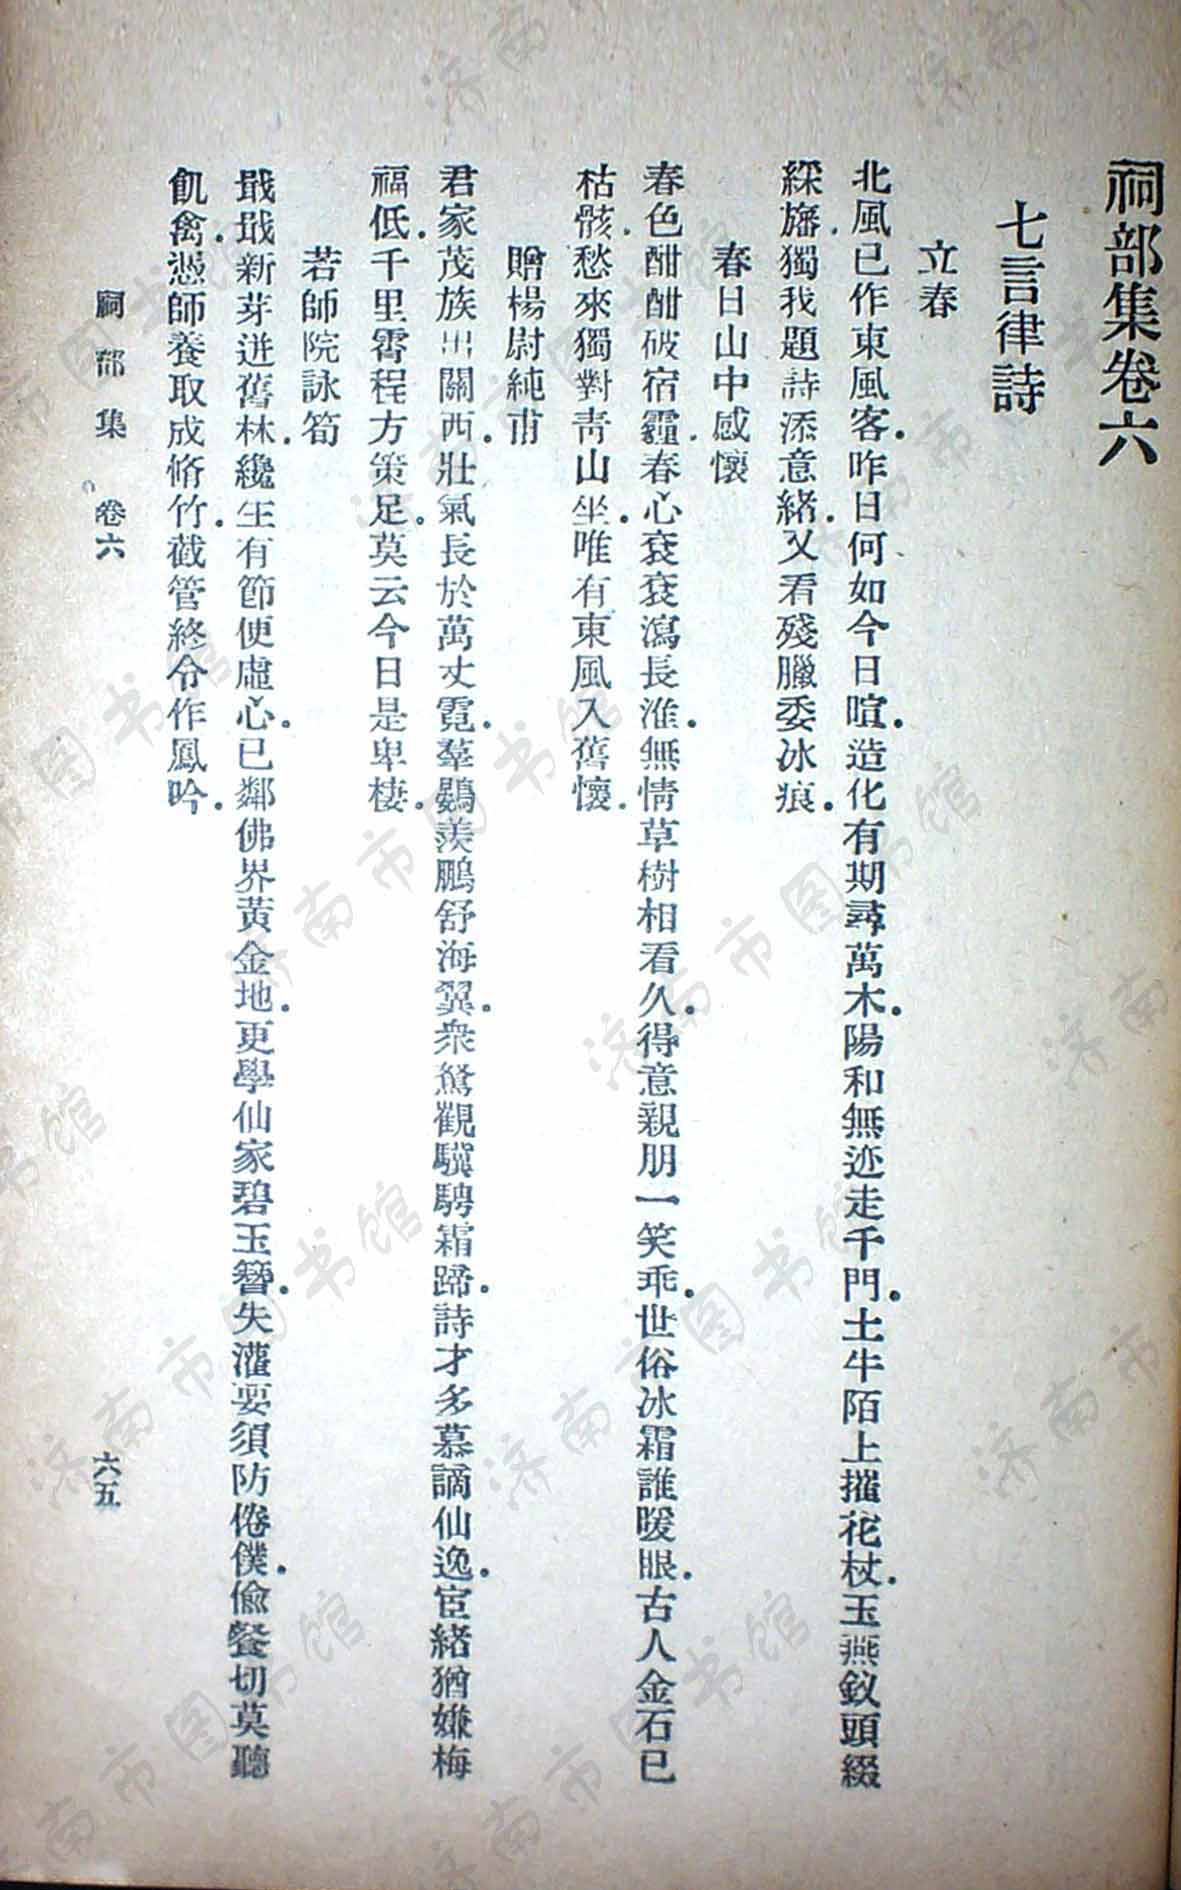 祠部集卷六
七言律詩
立春
北風已作東風客。昨日何如今日暄。造化有期尋萬木。陽和無迹走千門。土牛陌上摧花杖。玉燕釵頭綴
綵旛。獨我題詩添意緒。又看殘臘委冰痕。
春日山中感懷
春色酣酣破宿霾。春心袞袞瀉長淮。無情草樹相看久。得意親朋一笑乖。世俗冰霜誰暖眼。古人金石已
枯骸。愁來獨對靑山坐。唯有東風入舊懷。
贈楊尉純甫
君家茂族出關西。壯氣長於萬丈霓。羣鷃羨鵬舒海翼。衆駑觀驥騁霜蹄。詩才多慕謫仙逸。宦緒猶嫌梅
福低。千里霄程方策足。莫云今日是卑棲。
若師院詠筍
戢戢新芽迸舊林。纔生有節便虛心。已鄰佛界黃金地。更學仙家碧玉簪。失灌要須防倦僕。偷餐切莫聽
飢禽。憑師養取成脩竹。截管終令作鳳吟。
祠部集 卷六
六五
济南市图书馆